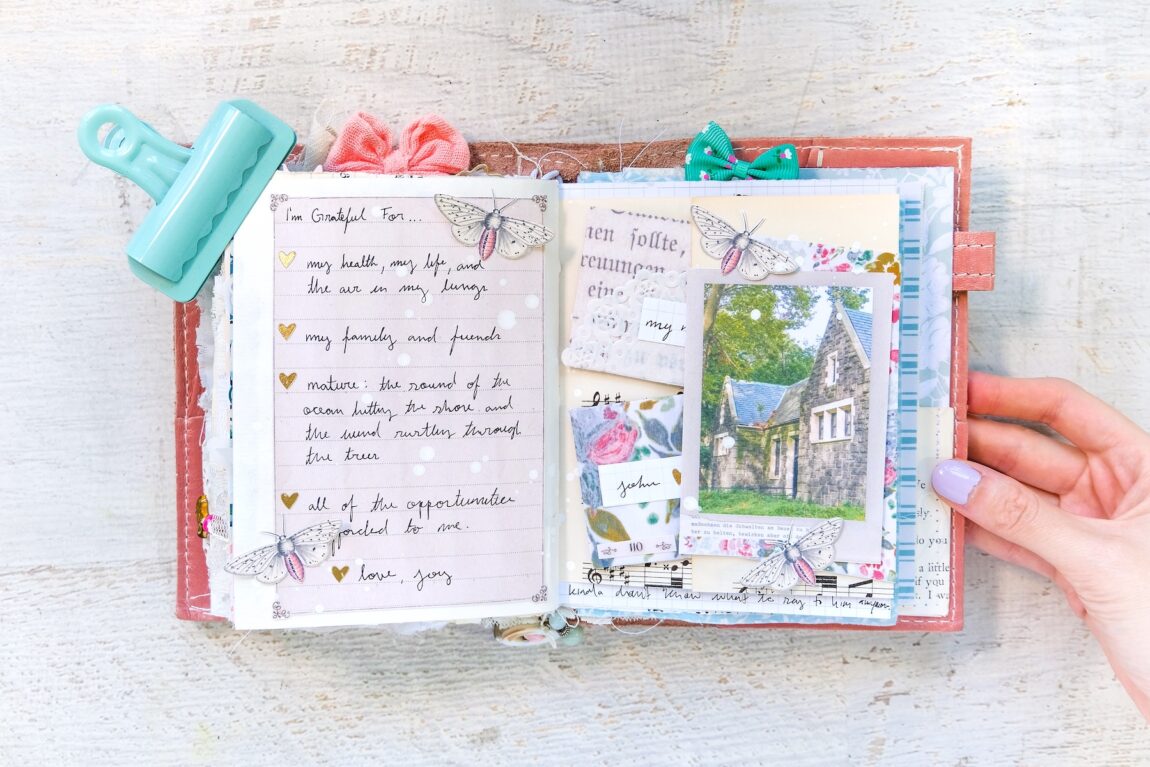 I'm Grateful For...
my health, my life, and
the air in my lungs
my family and friends
nature: the sound of the
ocean hitting the shore and
the wind rustling through
the trees
all of the opportunities
to me
love, joy
nen sollte,
reuungen
eine
my
john
110
die Schwalben am
aber
kinda didn't know what to say to him anymore
ly.
to you
a little
if you
I w